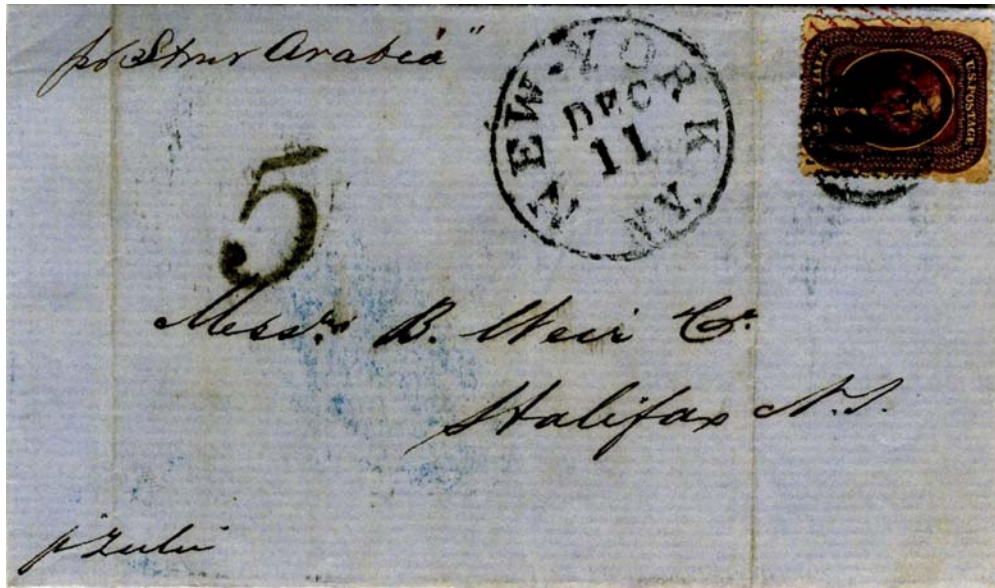 pr Stmr Arabia"
NEW-YORK
DEC
11
U.S. POSTAGE
5
Messrs. B. Weir Co.
Halifax N.S.
p Zulu